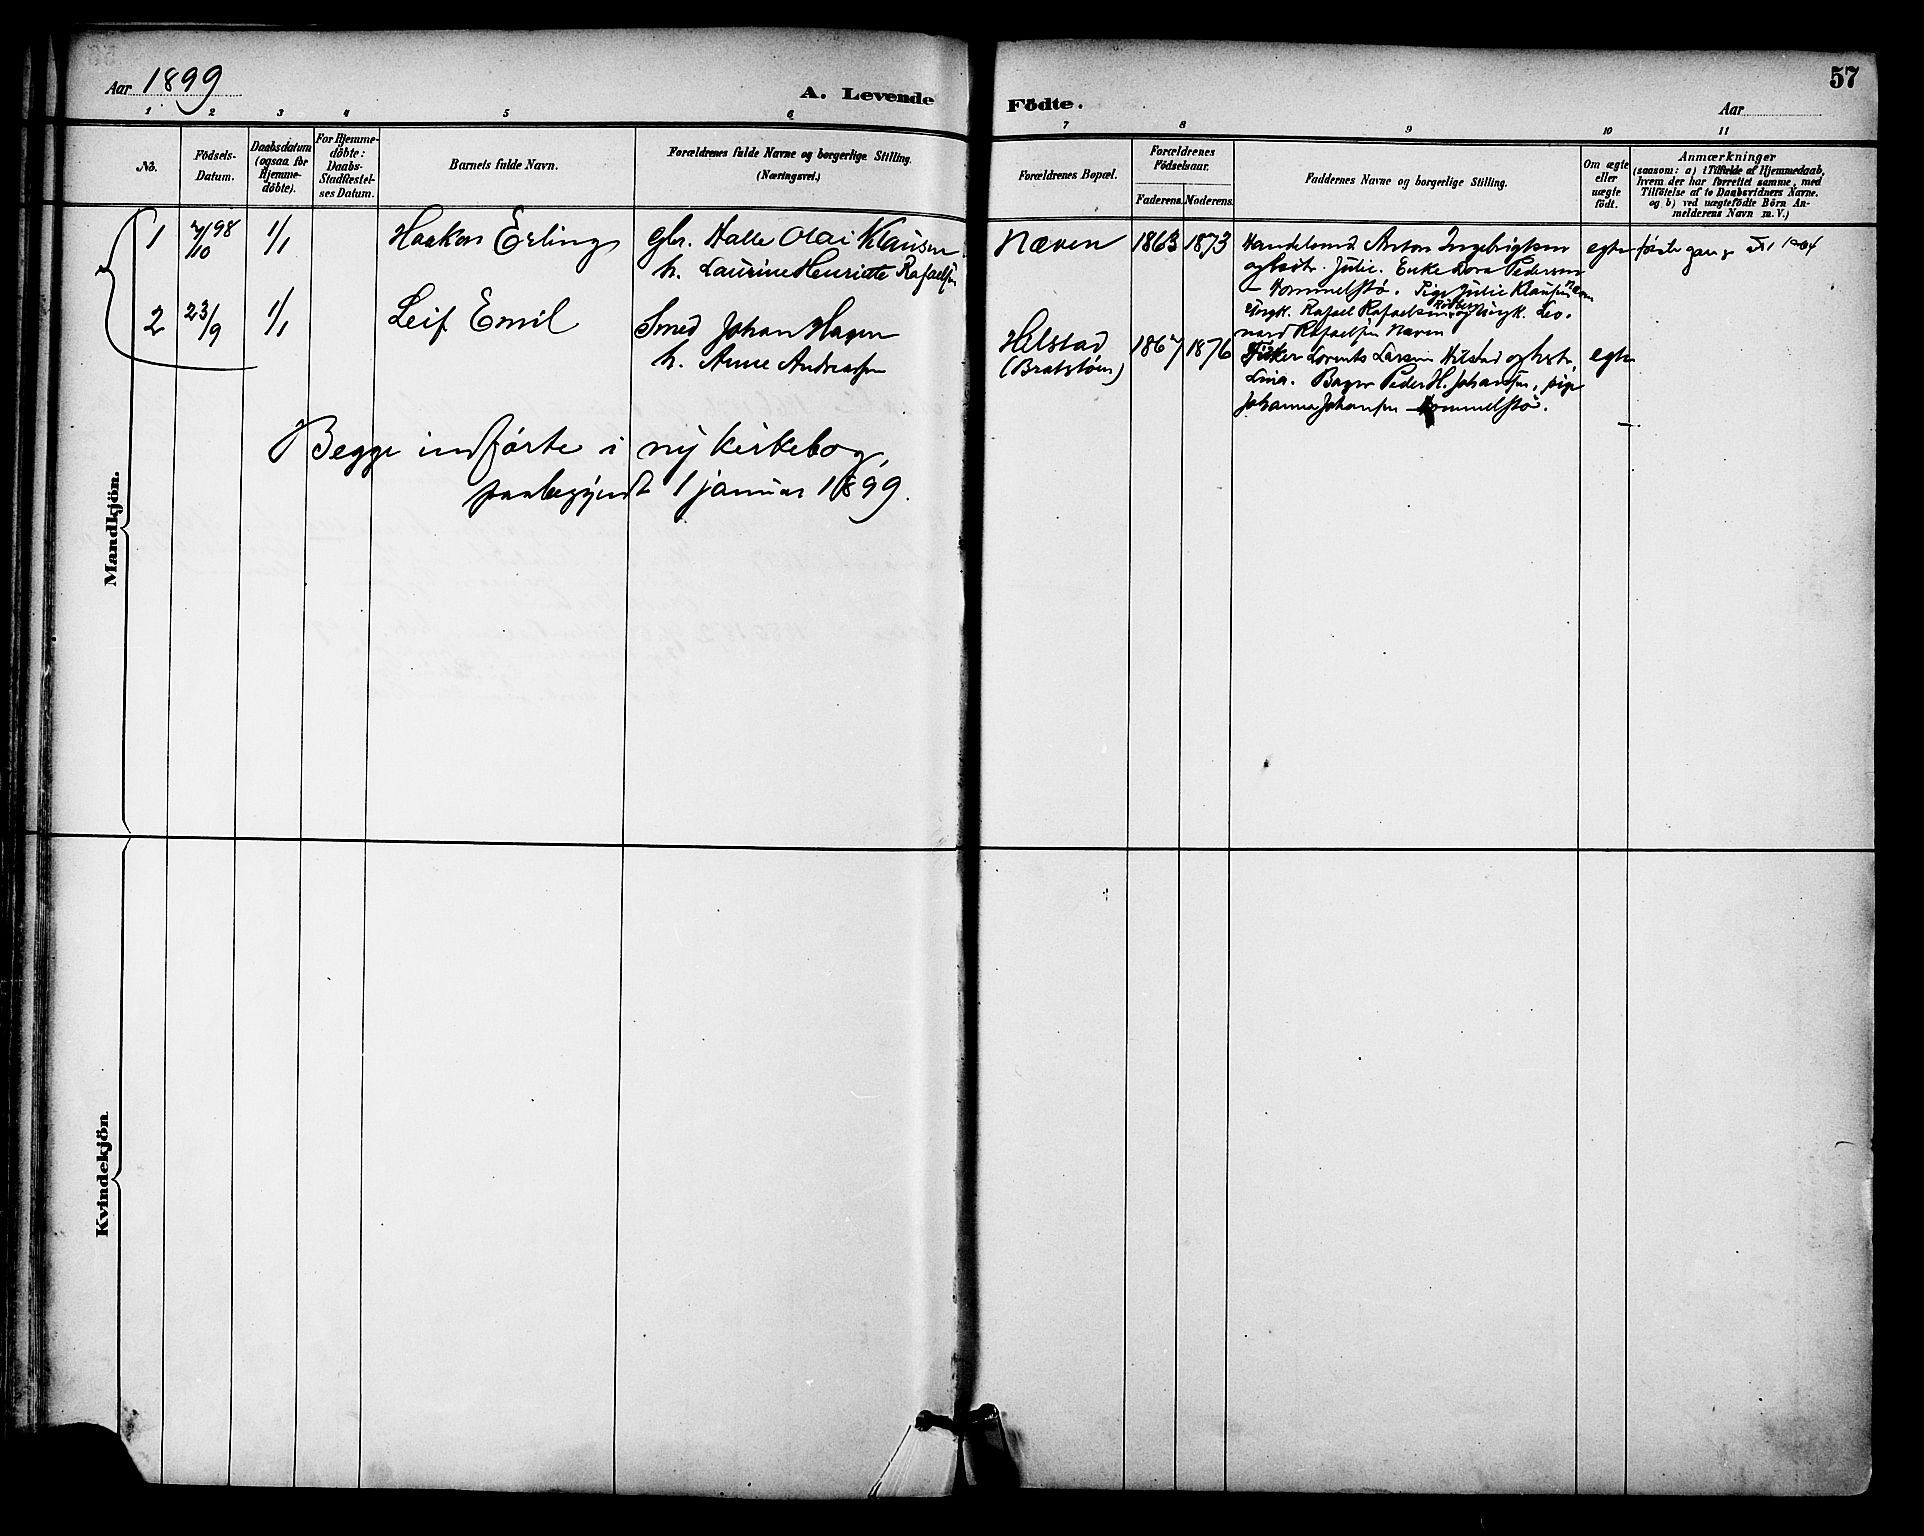 Aar 1899
A. Levende Födte.
57
Aar
1 2 3 4 5 6 7 8 9 10 11
No.
Födsels-Datum.
Daabsdatum (ogsaa for Hjemme-döbte).
For Hjemme-döbte: Daabs-Stadfæstel-ses Datum.
Barnets fulde Navn.
Forældrenes fulde Navne og borgerlige Stilling. (Næringsvei.)
Forældrenes Bopæl.
Forældrenes Födselsaar.
Faderens. Moderens.
Faddernes Navne og borgerlige Stilling.
Om ægte eller uægte födt.
Anmærkninger
(saasom: a) i Tilfælde af Hjemmedaab,
hvem der har forrettet samme, med
Tilföielse af to Daabsvidners Navne.
og b) ved uægtefödte Börn An-
melderens Navn m. V.)
Mandkjön.
1 7/10 98 1/1 Haakon Erling
Gbr. Halle Olai Klausen
h. Laurine Henriette Rafaelsen
Næven 1863 1873
Handelsmd Anton Ingebrigtsen
og hustr. Julie. Enke Dora Pedersen
– Hommelstø. Pige Julie Klausen Næven
Ungk. Rafael Rafaelsen og Ungk. Leo-
nard Rafaelsen Næven
egte første gang
2 23/9 1/1 Leif Emil
Smed Johan Hagen
h. Anne Andreassen
Helstad (Bratstøen) 1867 1876
Fisker Lorents Larsen Hilstad og hustr.
Lina. Bager Peder H. Johansen, pige
Johanna Johansen – Hommelstø.
egte
Begge indførte i ny kirkebog,
paabegyndt 1 januar 1899.
Kvindekjön.